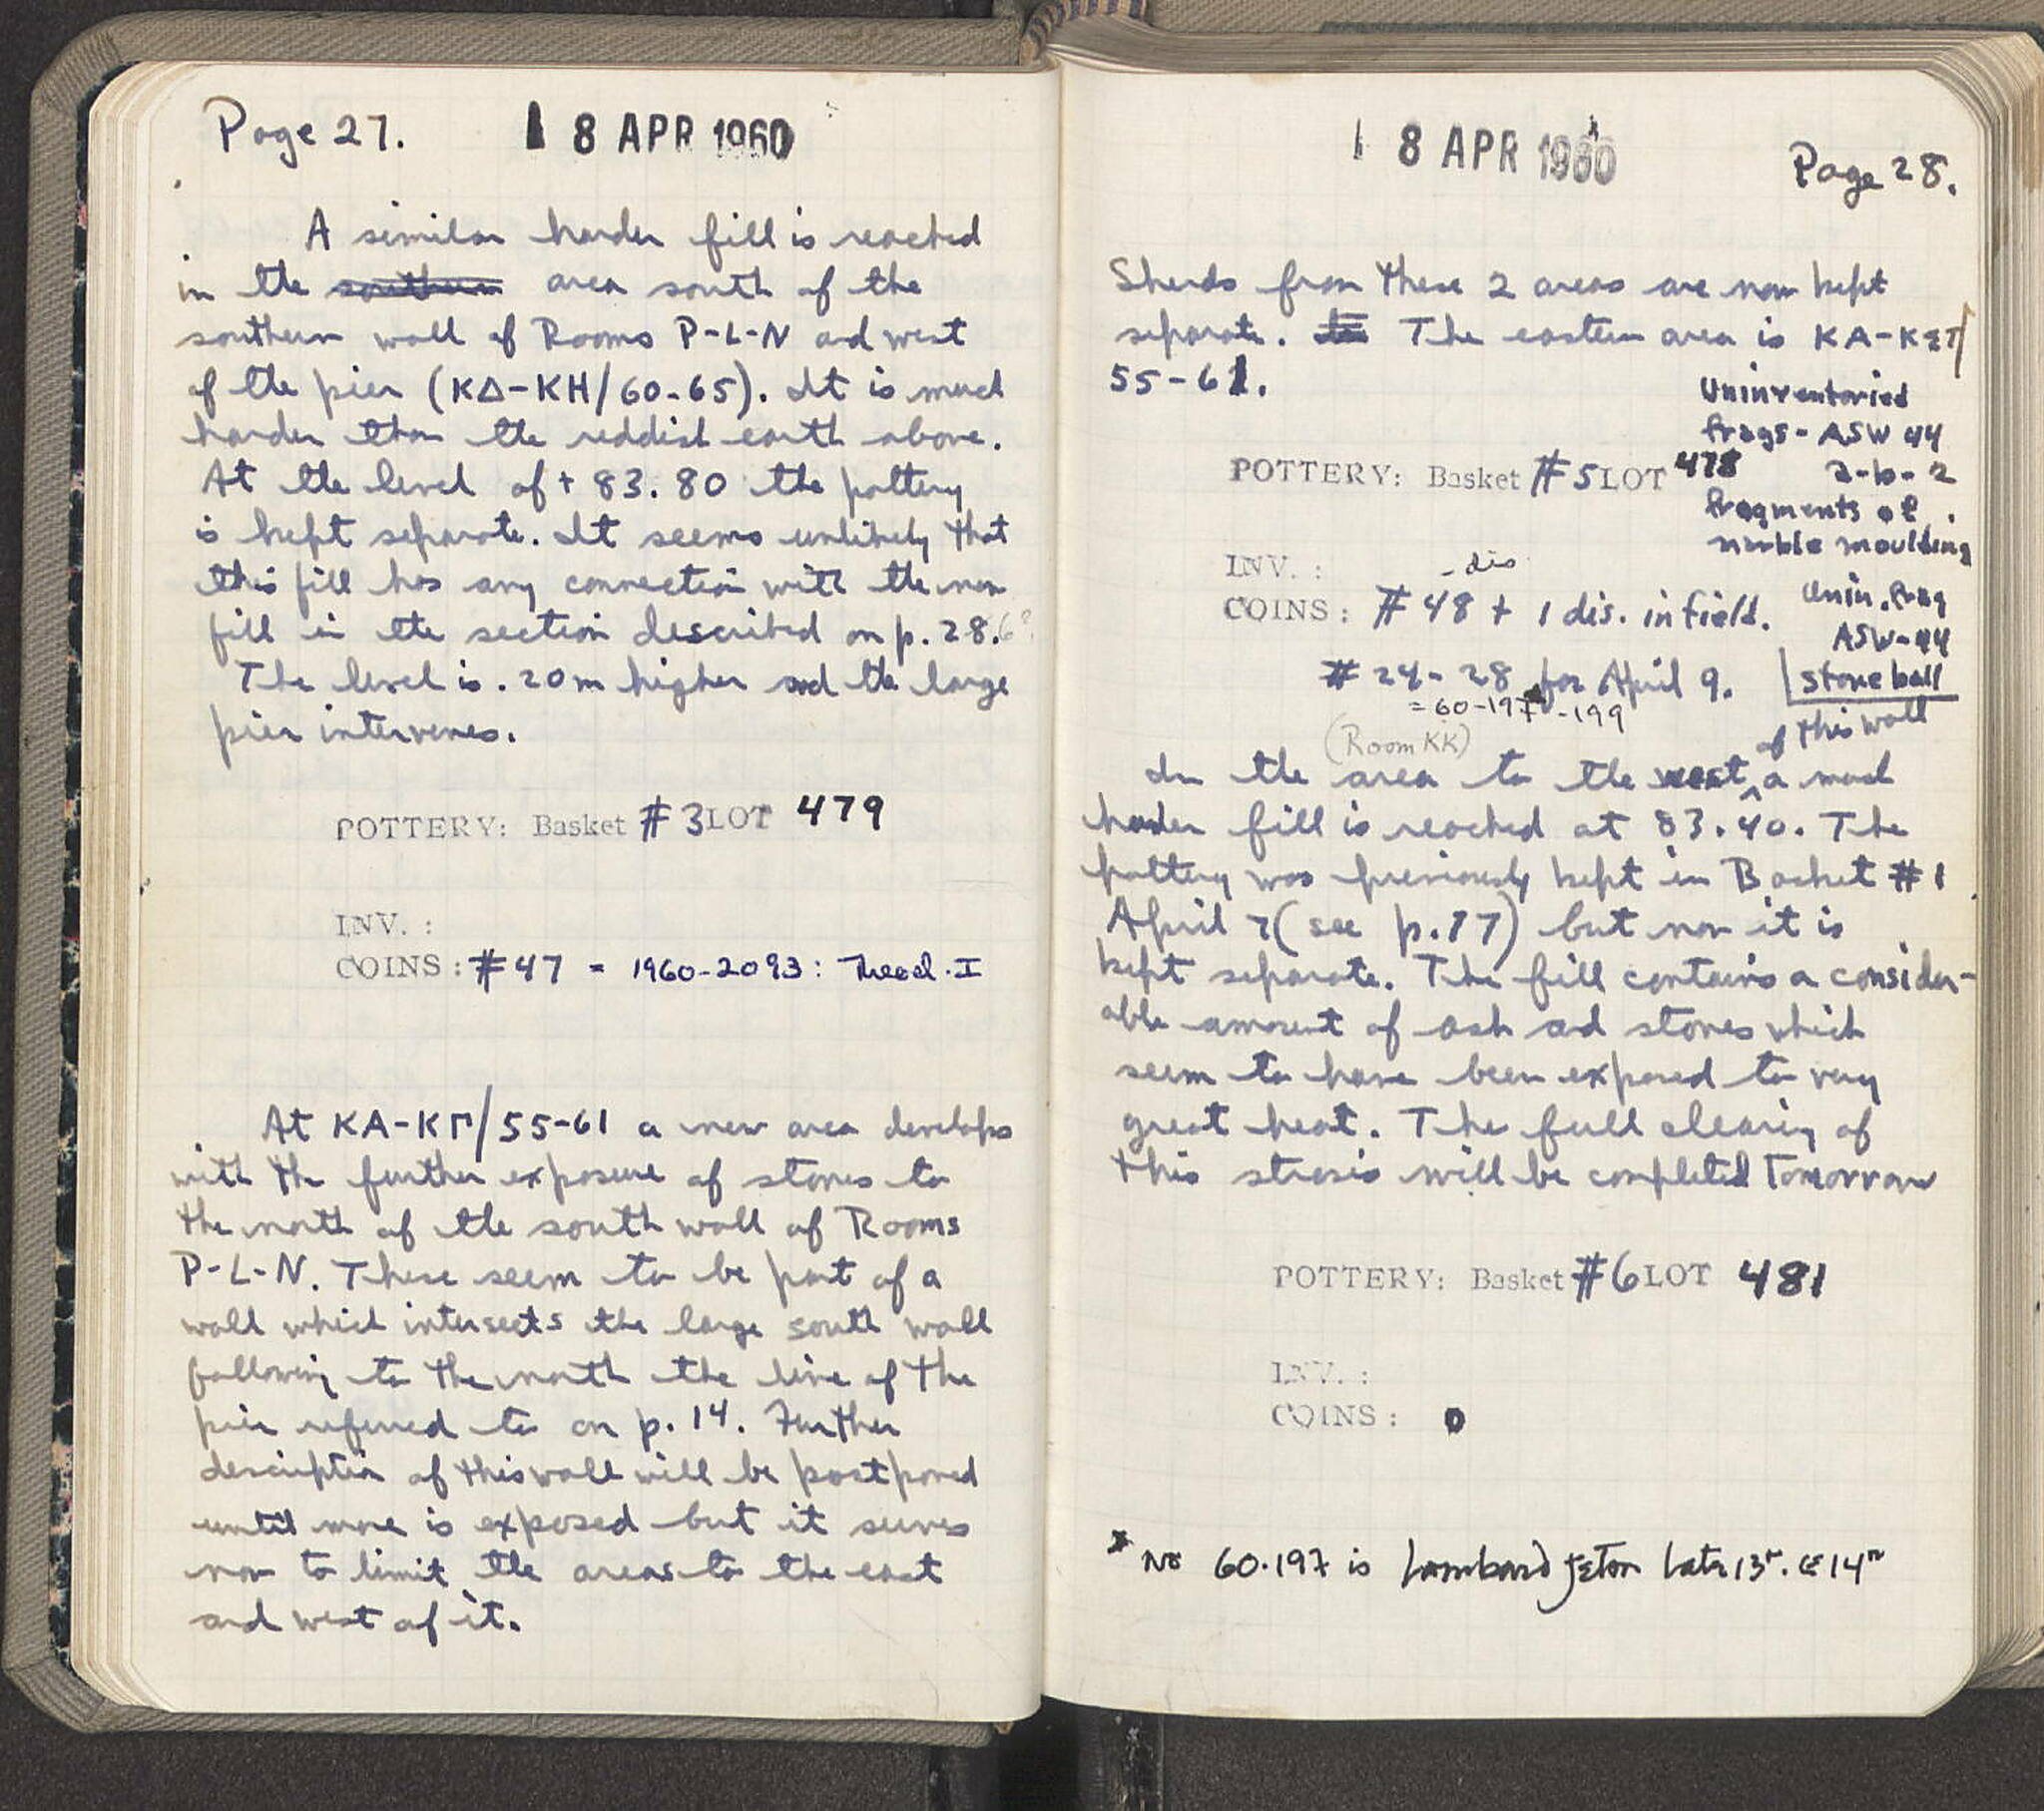 Page 27. 18 APR 1960
A similar harder fill is reached
in the southern area south of the
southern wall of Rooms P-L-N and west
of the pier (ΚΔ-ΚΗ/60-65). It is much
harder than the reddish earth above.
At the level of + 83.80 the pottery
is kept separate. It seems unlikely that
this fill has any connection with the new
fill in the section described on p. 28.
The level is .20m higher and the large
pier intervenes.
POTTERY: Basket #3 LOT 479
INV. :
COINS: #47 = 1960-2093: Theod. I
At ΚΑ-ΚΓ/55-61 a new area develops
with the further exposure of stones to
the north of the south wall of Rooms
P-L-N. These seem to be part of a
wall which intersects the large south wall
following to the north the line of the
pier referred to on p. 14. Further
description of this wall will be postponed
until more is exposed but it serves
now to limit the areas to the east
and west of it.
18 APR 1960 Page 28.
Sherds from these 2 areas are now kept
separate. The eastern area is
55-61.
Uninventoried
frags - ASW 44
a-b-2
fragments of
marble moulding
POTTERY: Basket #5 LOT 478
INV. :
- dis
COINS: #48 + 1 dis. in field.
Unin. frag
ASW-44
stone ball
#24-28 for April 9.
= 60-197*-199
(Room KK)
of this wall
In the area to the west a much
harder fill is reached at 83.40. The
pottery was previously kept in Basket #1
April 7 (see p. 17) but now it is
kept separate. The fill contains a consider-
able amount of ash and stones which
seem to have been exposed to very
great heat. The full clearing of
this strosis will be completed tomorrow
POTTERY: Basket #6 LOT 481
INV. :
COINS: 0
* No 60.197 is Lombard Jeton late 13